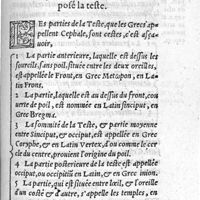 posé la teste.
LEs parties de la Teste, que les Grecs ap-
pellent Cephale, sont cestes, c'est asça-
uoir,
1 La partie anterieure, laquelle est dessus les
sourcils, sans poil, située entre les deux oreilles,
est appellée le Front, en Grec Metopon, en La-
tin Frons.
2 La partie, laquelle est au dessus du front, cou
uerte de poil, est nommée en Latin sinciput, en
Grec Bregma.
3 La sommité de la Teste, & partie moyenne
entre Sinciput, & occiput, est appellée en Grec
Coryphe, & en Latin Vertex, d'ou comme cer-
cle de centre, prouient l'origine du poil.
4 La partie posterieure de la teste est appellée
occiput, ou occipitiũ en Latin, & en Grec inion.
5 La partie, qui est située entre l'œil, & l'oreille
d'un costé & d'autre, s'appelle les temples, en